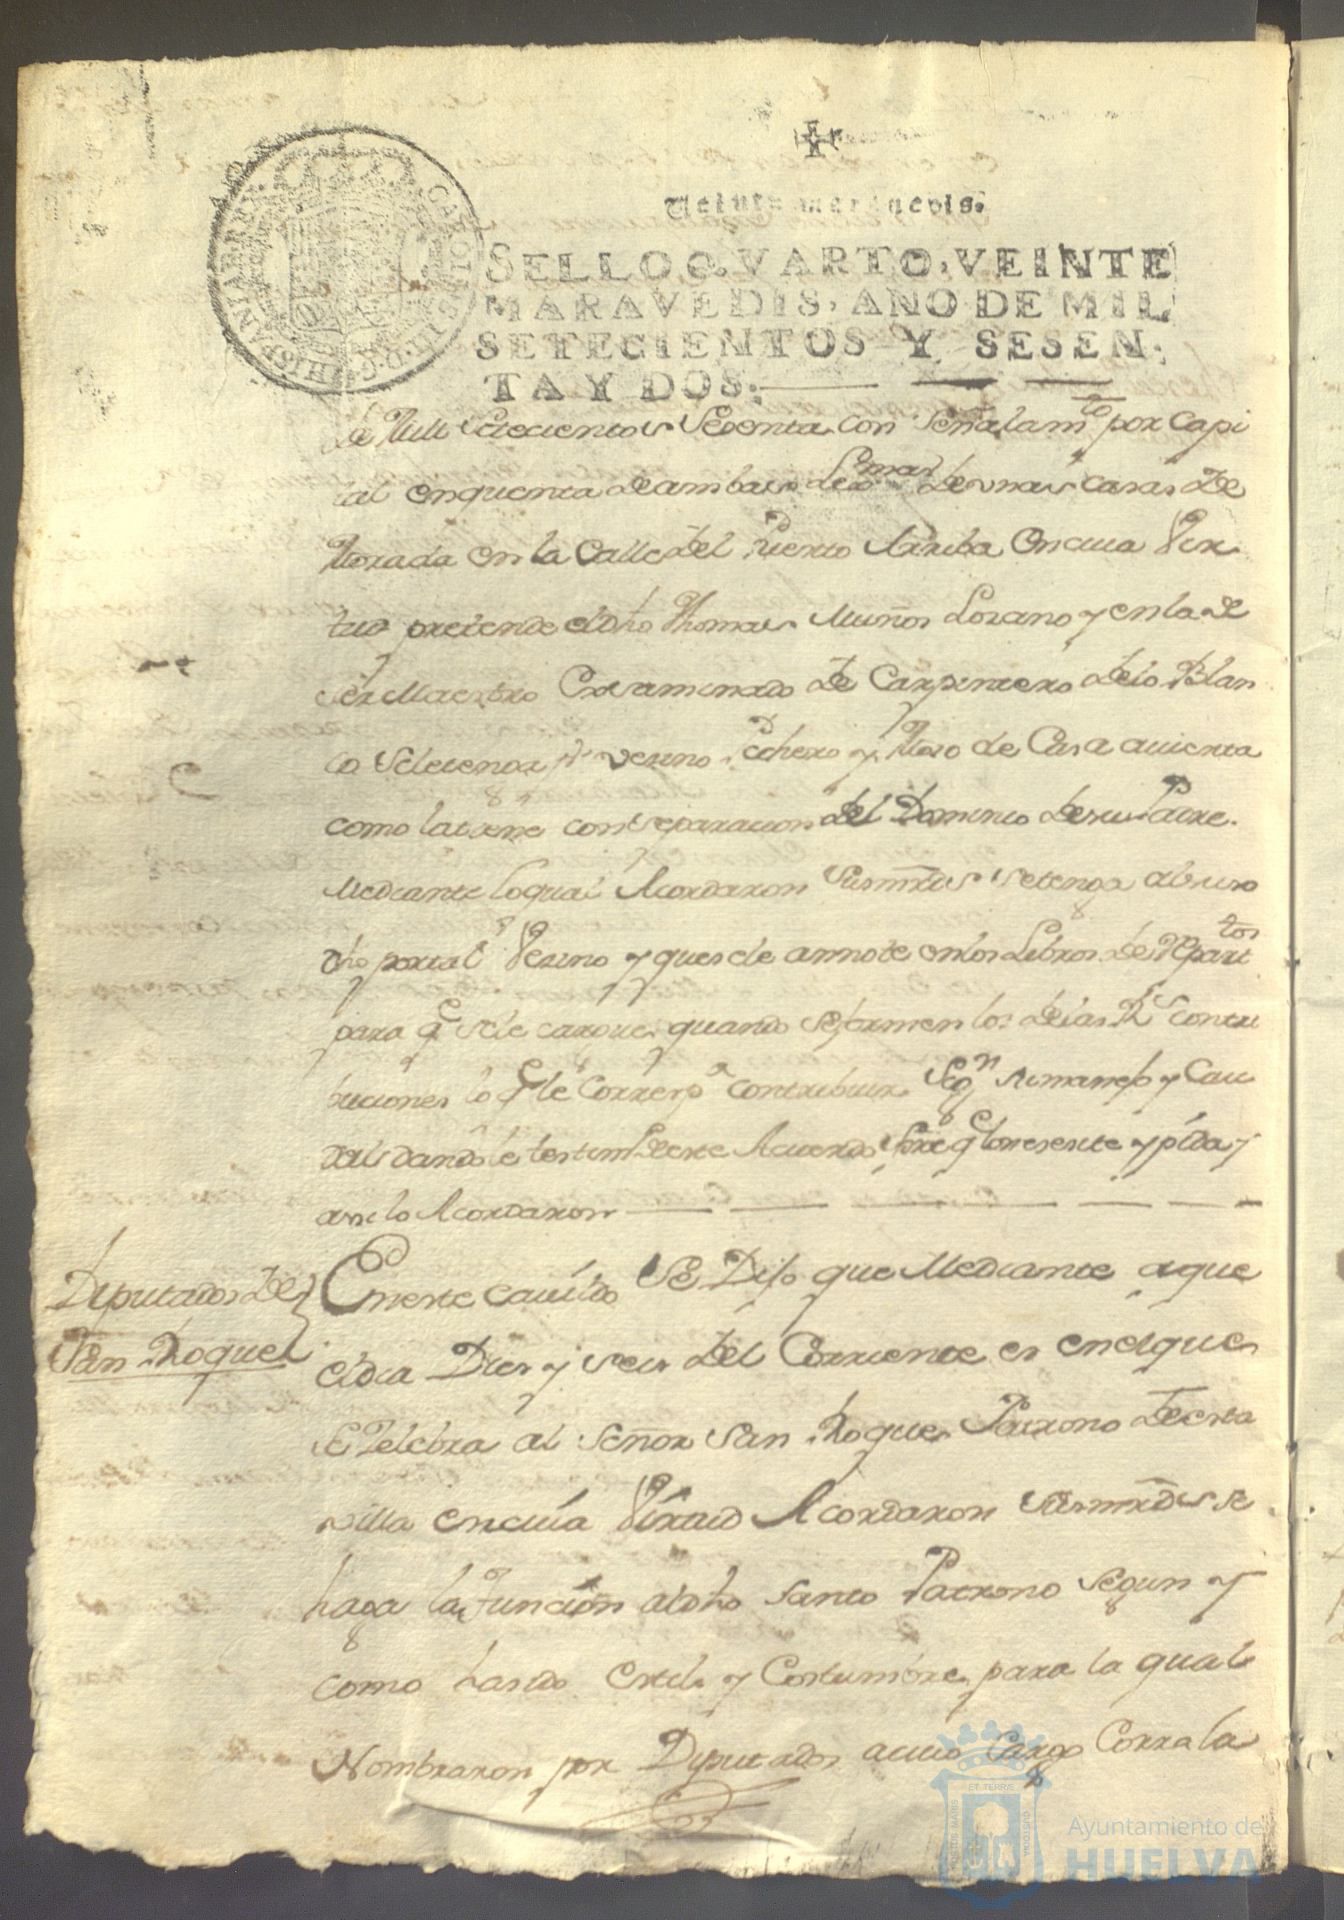 Veinte maravedis.
SELLO QVARTO, VEINTE
MARAVEDIS, AÑO DE MIL
SETECIENTOS Y SESEN-
TA Y DOS.
CAROLUS III D. G. HISPANIAR. REX
de Mill Setecientos Sesenta con Señalamto por Capi
tal cinquenta de ambas de unas casas de
Morada en la Calle del Puerto Arriba En cuia Vir
tud pretende el dho Thomas Muños Lozano y en la de
ser Maestro Examinado de Carpintero de lo Blan
co se le tenga pr Vesino Pechero y Mero de Casa avierta
como la tiene con separacion del Dominio de su Padre.
Mediante lo qual Acordaron sus mrds se tenga al suso
dho por tal Vesino y que se le annote en los Libros de Repartos
para qe se le cargue quando se formen los de las Rs Contri
buciones lo qe le Corresp.a contribuir Segn su manejo y Cau
dal dandole testim de este Acuerdo Sore qe lo presente y pida y
assi lo Acordaron
Diputados de
San Roque
En este Cavildo Se Dijo que Mediante a que
el dia Dies y seis del Corriente es en el que
se Zelebra al Señor San Roque Patrono de esta
villa en cuia Virtud Acordaron sus mrds se
haga la funcion al dho Santo Patrono segun y
como ha sido Estilo y Costumbre para la qual
Nombraron por Diputados a cuio Cargo Corra la
Ayuntamiento de
HUELVA